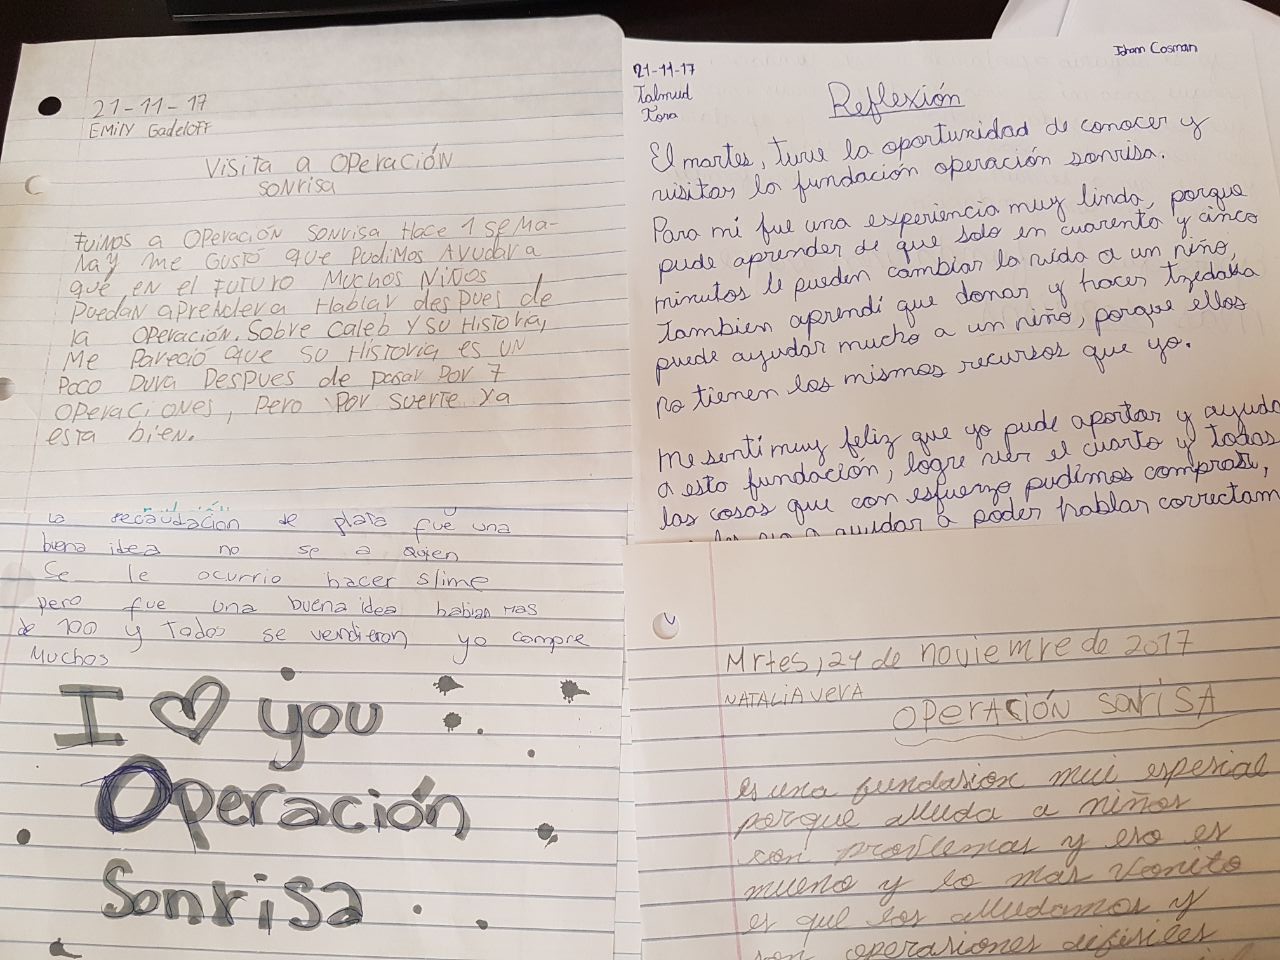 21-11-17
EMily Gadeloff
Visita a OPeraCIÓN
SONrisa
Fuimos a OPeraCIÓN SONrisa Hace 1 SeMa-
Na y Me GUSTÓ que PUDIMOS AYUDAr a
que en el FUTURO MUCHOS NIÑOS
PUedan aPrender a HaBlar desPues de
la OPeraCIÓN. SoBre CaleB Y SU HISTOria,
Me PareCIÓ que SU HISTOria es UN
POCO Dura DesPUES de pasar POr 7
OPeraCIONes, PerO POr SUerTe Ya
esTa bien.
21-11-17
Talmud
Tora
Cosman
Reflexión
El martes, tuve la oportunidad de conocer y
visitar la fundación operación sonrisa.
Para mi fue una experiencia muy linda, porque
pude aprender de que solo en cuarenta y cinco
minutos le pueden cambiar la vida a un niño,
tambien aprendí que donar y hacer tzedaka
puede ayudar mucho a un niño, porque ellos
no tienen los mismos recursos que yo.
Me sentí muy feliz que yo pude aportar y ayuda
a esta fundación, logre ver el cuarto y todas
las cosas que con esfuerzo pudimos comprar,
va a ayudar a poder hablar correctam
La recaudación de plata fue una
buena idea no se a quien
Se le ocurrio hacer slime
pero fue una buena idea habian mas
de 100 y todos se vendieron yo compre
Muchos
I ♡ you
Operación
Sonrisa
Mrtes, 21 de noviemre de 2017
NATALIA VerA
OPerACión SonriSA
es una fundasion mui espesial
porque alluda a niños
con problemas y eso es
mueno y lo mas vonito
es que los alludamos y
son operasiones difisiles